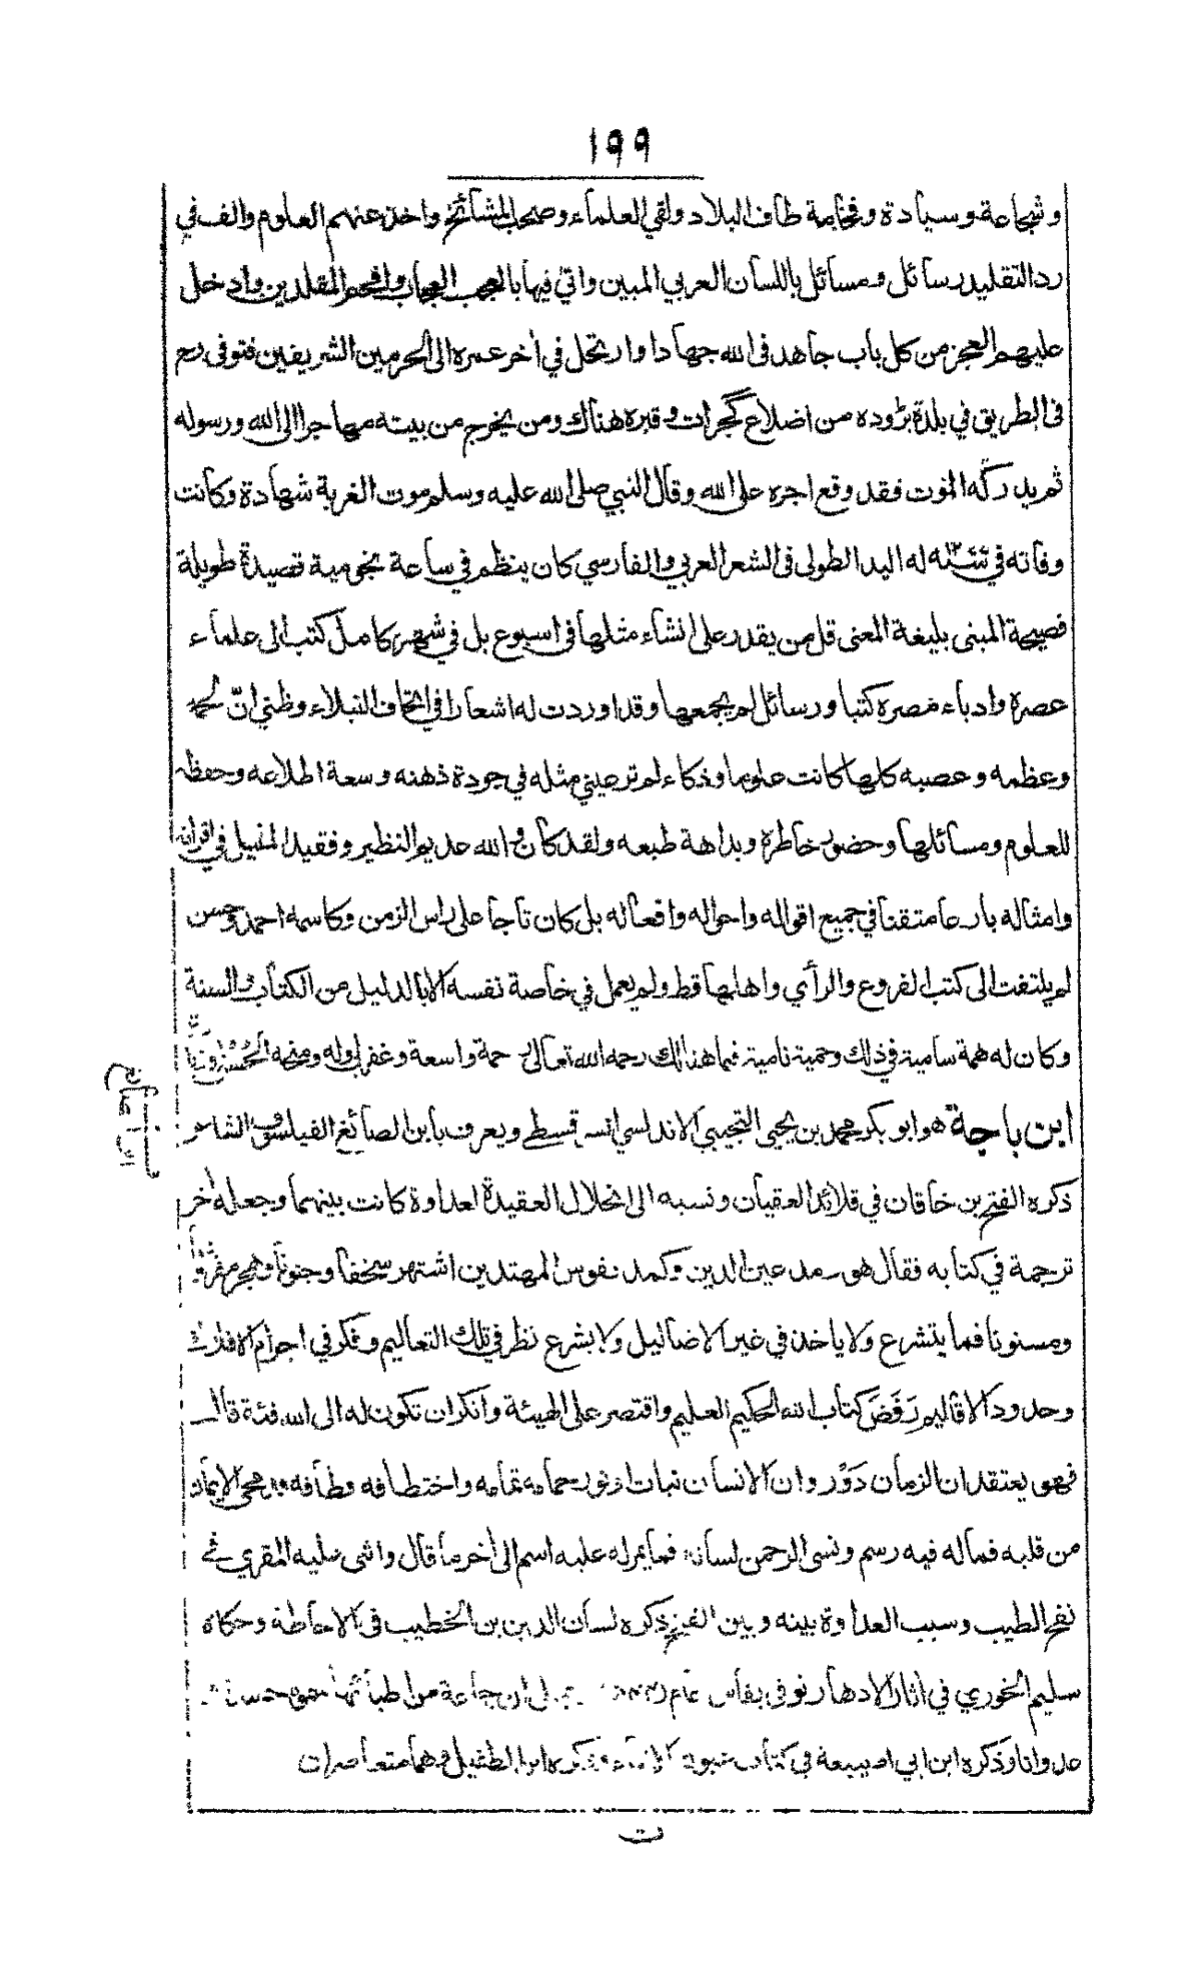 ١٩٩
وشجاعة وسيادة وفخامة طاف البلاد ولقي العلماء وصحب المشائخ واخذ عنهم العلوم والف في
رد التقليد رسائل ومسائل باللسان العربي المبين واتى فيها بالعجب العجاب وافحم المقلدين وادخل
عليهم العجز من كل باب جاهد فى الله جهادا وارتحل في اخر عمره الى الحرمين الشريفين فتوفى رح
فى الطريق في بلدة بڑوده من اضلاع گجرات وقبره هناك ومن يخرج من بيته مهاجرا الى الله ورسوله
ثم يدركه الموت فقد وقع اجره على الله وقال النبي صلى الله عليه وسلم موت الغربة شهادة وكانت
وفاته في له اليد الطولى فى الشعر العربي والفارسي كان ينظم في ساعة نجومية قصيدة طويلة
فصيحة المبنى بليغة المعنى قل من يقدر على انشاء مثلها فى اسبوع بل في شهر كامل كتب الى علماء
عصره وادباء مصره كتبا ورسائل لم يجمعها وقد اوردت له اشعارا في اتحاف النبلاء وظني انّ لحمه
وعظمه وعصبه كلها كانت علوما وذكاء لم تر عيني مثله في جودة ذهنه وسعة اطلاعه وحفظه
للعلوم ومسائلها وحضور خاطره وبداهة طبعه ولقد كان والله عديم النظير وفقيد المثيل في اقرانه
وامثاله بارعا متقنا في جميع اقواله واحواله وافعاله بل كان تاجا على راس الزمن وكاسمه احمد وحسن
لم يلتفت الى كتب الفروع والرأي واهلها قط ولم يعمل في خاصة نفسه الا بالدليل من الكتاب والسنة
وكان له همة سامية في ذلك وحمية نامية فيما هنالك رحمه الله تعالى رحمة واسعة وغفر لي وله ومنحه الحسنى وزيادة
ابن باجة هو ابو بكر محمد بن يحيى التجيبي الاندلسي السرقسطي ويعرف بابن الصائغ الفيلسوف الشاعر
ابن الصائغ
ذكره الفتح بن خاقان في قلائد العقيان ونسبه الى انحلال العقيدة لعداوة كانت بينهما وجعله اخر
ترجمة في كتابه فقال هو رمد عين الدين وكمد نفوس المهتدين اشتهر سخفا وجنونا وهجر مفروضا
ومسنونا فما يتشرع ولا ياخذ في غير الاضاليل ولا يشرع نظر في تلك التعاليم وفكر في اجرام الافلاك
وحدود الاقاليم رَفَضَ كتاب الله الحكيم العليم واقتصر على الهيئة وانكر ان تكون له الى الله فئة قال
فهو يعتقد ان الزمان دَوْر وان الانسان نبات او نور حمامه تمامه واختطافه قطافه محى الايمان
من قلبه فماله فيه رسم ونسى الرحمن لسانه فما يمر له عليه اسم الى اخر ما قال واثنى عليه المقري في
نفح الطيب وسبب العداوة بينه وبين الفتح ذكره لسان الدين بن الخطيب فى الاحاطة وحكاه
سليم الخوري في اثار الادهار توفى بفاس عام ان جاعة من اطبائها
عدوانا وذكره ابن ابي اصيبعة في كتاب ذكره ابن الطفيل وهما متعاصران
ت